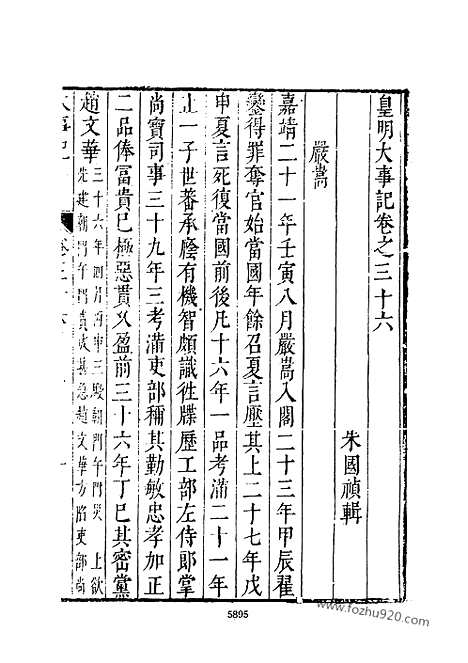 皇明大事記卷之三十六
朱國禎輯
嚴嵩
嘉靖二十一年壬寅八月嚴嵩入閣二十三年甲辰翟
鑾得罪奪官始當國年餘召夏言壓其上二十七年戊
申夏言死復當國前後凡十六年一品考滿二十一年
止一子世蕃承廕有機智頗識徃牒歷工部左侍郎掌
尚寶司事三十九年三考滿吏部稱其勤敏忠孝加正
二品俸冨貴已極惡貫乆盈前三十六年丁巳其密黨
趙文華三十六年四月丙申三殿朝門午門災 上欲
先建朝門午門責成甚急趙文華方陞吏部尚
5895
www.fozhu920.com